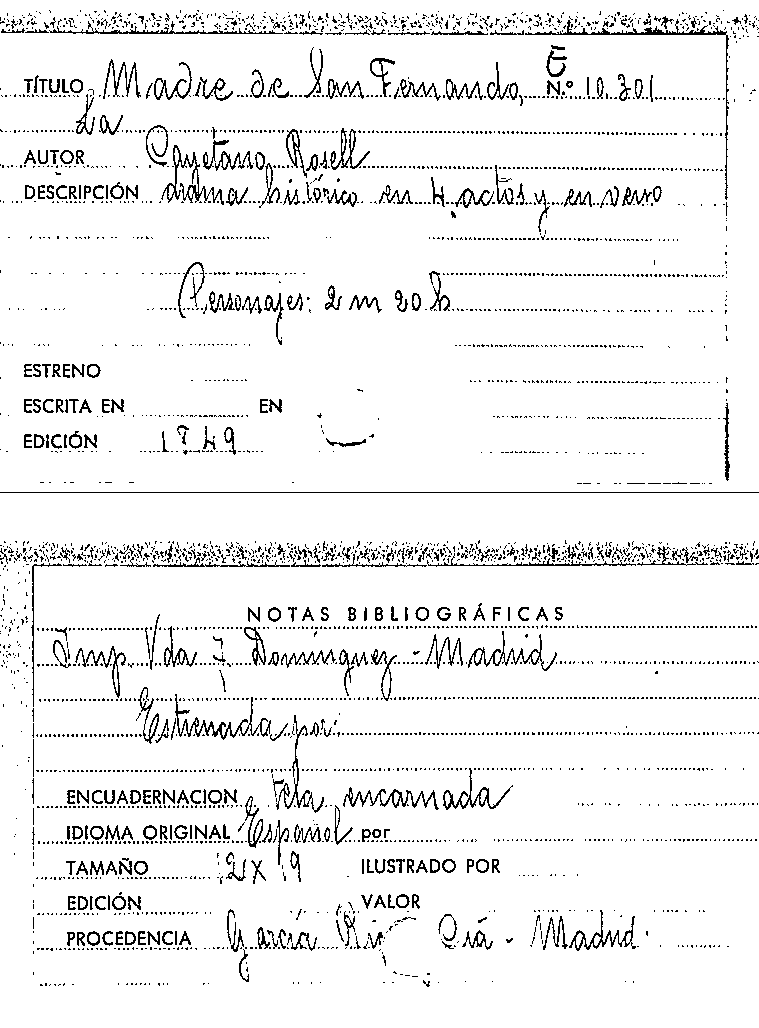 TÍTULO Madre de San Fernando, E N.º 10.301
La
AUTOR Cayetano Rosell
DESCRIPCIÓN drama histórico en 4 actos y en verso
Personajes: 2 m 20 h
ESTRENO
ESCRITA EN EN
EDICIÓN 1849
NOTAS BIBLIOGRÁFICAS
Imp. Vda Domínguez - Madrid
Estrenada por:
ENCUADERNACION tela encarnada
IDIOMA ORIGINAL Español por
TAMAÑO 12 X 19 ILUSTRADO POR
EDICIÓN VALOR
PROCEDENCIA García Rico Cía - Madrid.